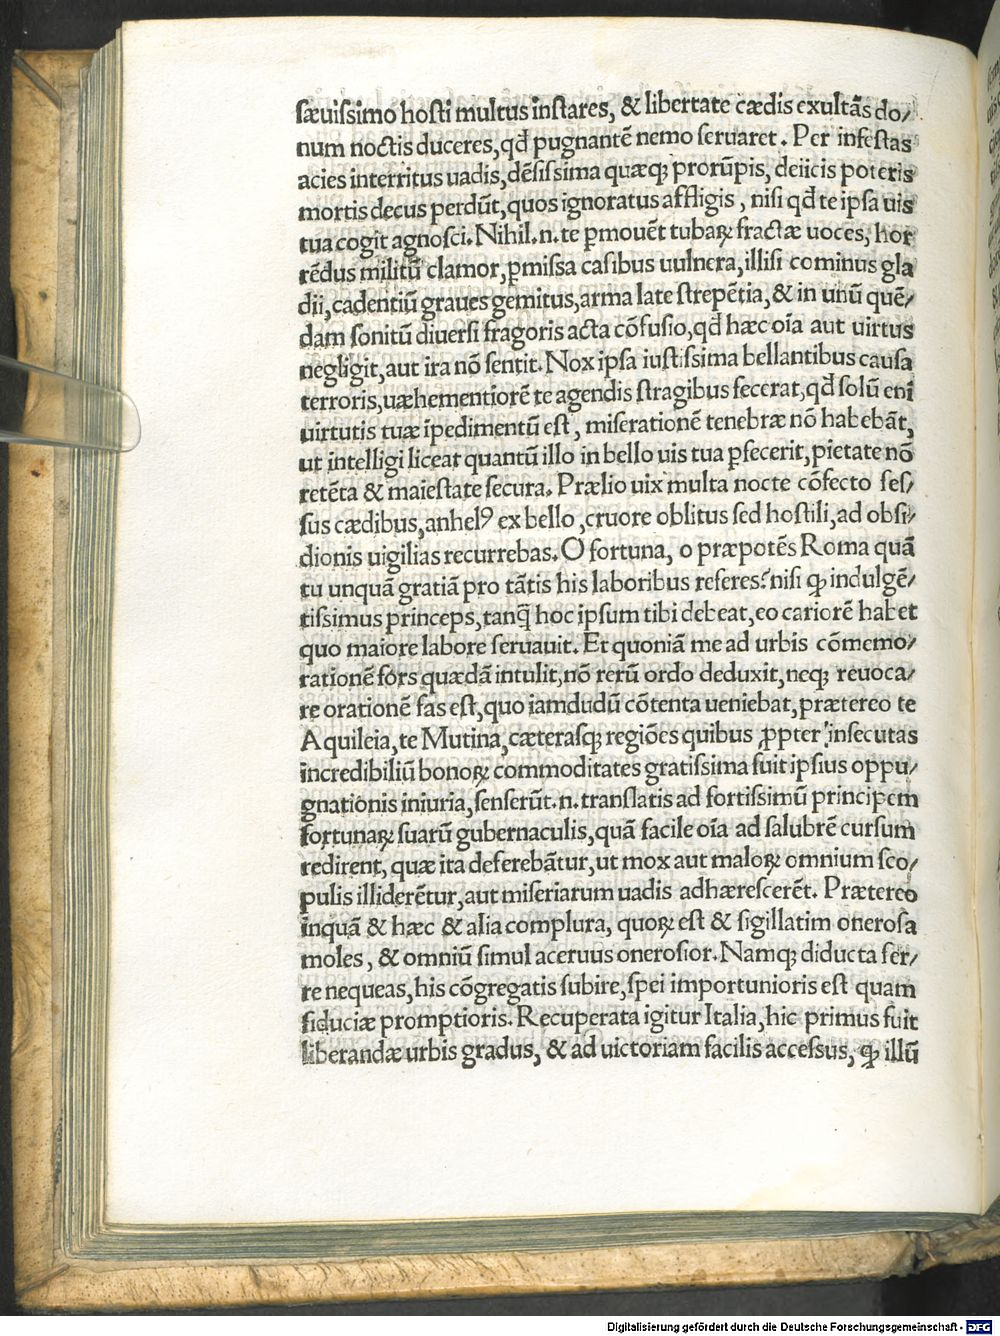 sæuissimo hosti multus instares, & libertate cædis exultãs do/
num noctis duceres, qd̃ pugnantẽ nemo seruaret. Per infestas
acies interritus uadis, dẽsissima quæqꝫ prorũpis, deiicis poteris
mortis decus perdũt, quos ignoratus affligis, nisi qd̃ te ipsa uis
tua cogit agnosci. Nihil .n. te ꝑmouẽt tubaꝝ fractæ uoces, hor
rẽdus militũ clamor, ꝑmissa casibus uulnera, illisi cominus gla
dii, cadentiũ graues gemitus, arma late strepẽtia, & in unũ quẽ/
dam sonitũ diuersi fragoris acta cõfusio, qd̃ hæc oĩa aut uirtus
negligit, aut ira nõ sentit. Nox ipsa iustissima bellantibus causa
terroris, uæhementiorẽ te agendis stragibus fecerat, qd̃ solũ eni
uirtutis tuæ ĩpedimentũ est, miserationẽ tenebræ nõ habebãt,
ut intelligi liceat quantũ illo in bello uis tua ꝑfecerit, pietate nõ
retẽta & maiestate secura. Prælio uix multa nocte cõfecto fes/
sus cædibus, anhelꝰ ex bello, cruore oblitus sed hostili, ad obsi/
dionis uigilias recurrebas. O fortuna, o præpotẽs Roma quã
tu unquã gratiã pro tãtis his laboribus referes? nisi ꝙ indulgẽ/
tissimus princeps, tanq̃ hoc ipsum tibi debeat, eo cariorẽ habet
quo maiore labore seruauit. Et quoniã me ad urbis cõmemo/
rationẽ fors quædã intulit, nõ rerũ ordo deduxit, neqꝫ reuoca/
re orationẽ fas est, quo iamdudũ cõtenta ueniebat, prætereo te
Aquileia, te Mutina, cæterasqꝫ regiões quibus ꝓpter insecutas
incredibiliũ bonoꝝ commoditates gratissima fuit ipsius oppu/
gnationis iniuria, senserũt .n. translatis ad fortissimũ principem
fortunaꝝ suarũ gubernaculis, quã facile oĩa ad salubrẽ cursum
redirent, quæ ita deferebãtur, ut mox aut maloꝝ omnium sco/
pulis illiderẽtur, aut miseriarum uadis adhærescerẽt. Prætereo
inquã & hæc & alia complura, quoꝝ est & sigillatim onerosa
moles, & omniũ simul aceruus onerosior. Namqꝫ diducta fer/
re nequeas, his cõgregatis subire, spei importunioris est quam
fiduciæ promptioris. Recuperata igitur Italia, hic primus fuit
liberandæ urbis gradus, & ad uictoriam facilis accessus, ꝙ illũ
Digitalisierung gefördert durch die Deutsche Forschungsgemeinschaft - DFG